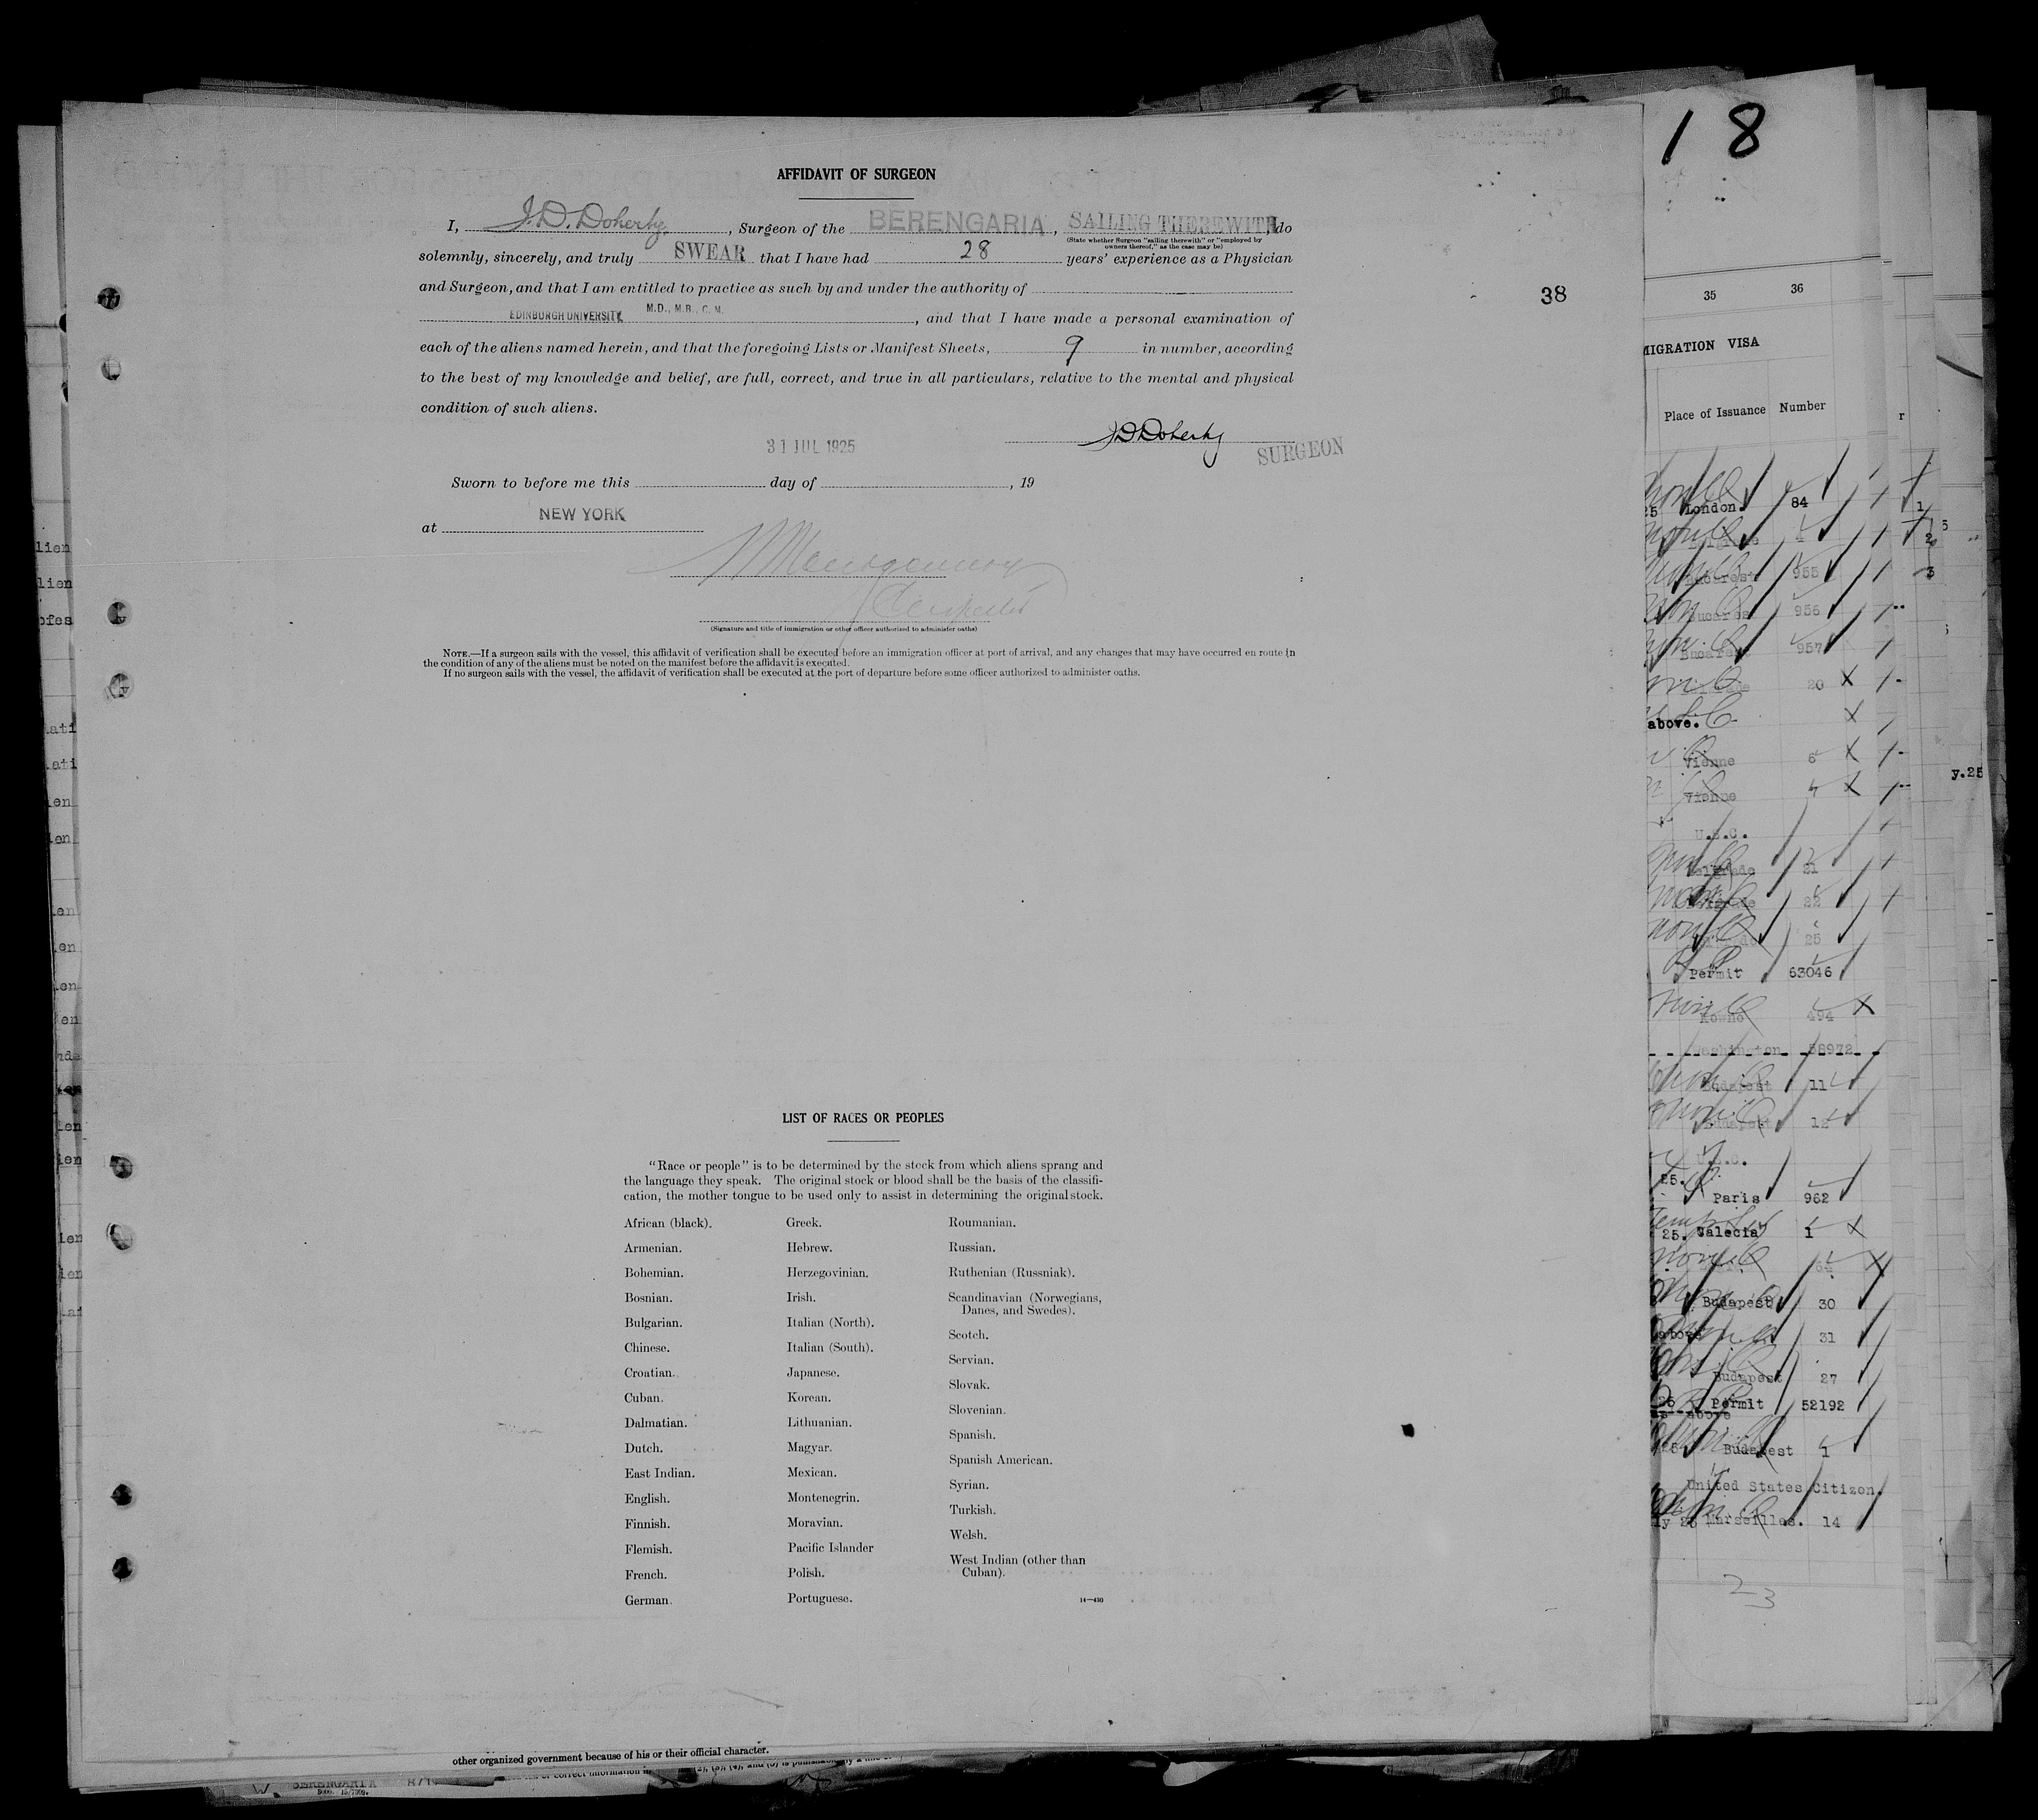 18
AFFIDAVIT OF SURGEON
I, J. D. Doherty, Surgeon of the BERENGARIA, SAILING THEREWITH, do
(State whether Surgeon "sailing therewith" or "employed by
owners thereof," as the case may be)
solemnly, sincerely, and truly SWEAR that I have had 28 years' experience as a Physician
and Surgeon, and that I am entitled to practice as such by and under the authority of
EDINBURGH UNIVERSITY M.D., M.B., C.M., and that I have made a personal examination of
each of the aliens named herein, and that the foregoing Lists or Manifest Sheets, 9 in number, according
to the best of my knowledge and belief, are full, correct, and true in all particulars, relative to the mental and physical
condition of such aliens.
38
J D Doherty
SURGEON
31 JUL 1925
Sworn to before me this day of , 19
at NEW YORK
Montgomery
Inspector
(Signature and title of immigration or other officer authorized to administer oaths)
NOTE.—If a surgeon sails with the vessel, this affidavit of verification shall be executed before an immigration officer at port of arrival, and any changes that may have occurred en route in
the condition of any of the aliens must be noted on the manifest before the affidavit is executed.
If no surgeon sails with the vessel, the affidavit of verification shall be executed at the port of departure before some officer authorized to administer oaths.
LIST OF RACES OR PEOPLES
"Race or people" is to be determined by the stock from which aliens sprang and
the language they speak. The original stock or blood shall be the basis of the classifi-
cation, the mother tongue to be used only to assist in determining the original stock.
African (black).
Armenian.
Bohemian.
Bosnian.
Bulgarian.
Chinese.
Croatian.
Cuban.
Dalmatian.
Dutch.
East Indian.
English.
Finnish.
Flemish.
French.
German.
Greek.
Hebrew.
Herzegovinian.
Irish.
Italian (North).
Italian (South).
Japanese.
Korean.
Lithuanian.
Magyar.
Mexican.
Montenegrin.
Moravian.
Pacific Islander
Polish.
Portuguese.
Roumanian.
Russian.
Ruthenian (Russniak).
Scandinavian (Norwegians,
Danes, and Swedes).
Scotch.
Servian.
Slovak.
Slovenian.
Spanish.
Spanish American.
Syrian.
Turkish.
Welsh.
West Indian (other than
Cuban).
14—430
35 36
MIGRATION VISA
Place of Issuance Number
London. 84
955
956
957
20
above.
Vienne 6
Vienne 4
U.S.C.
21
22
25
Permit 63046
Kowno 494
Washington 58972
Budapest 11
Budapest 12
25.
Paris 962
25. Valecia 1
Budapest 30
above 31
Budapest 27
25 Permit 52192
as above
Budapest 1
United States Citizen.
Marseilles. 14
23
y.25
other organized government because of his or their official character.
BERENGARIA